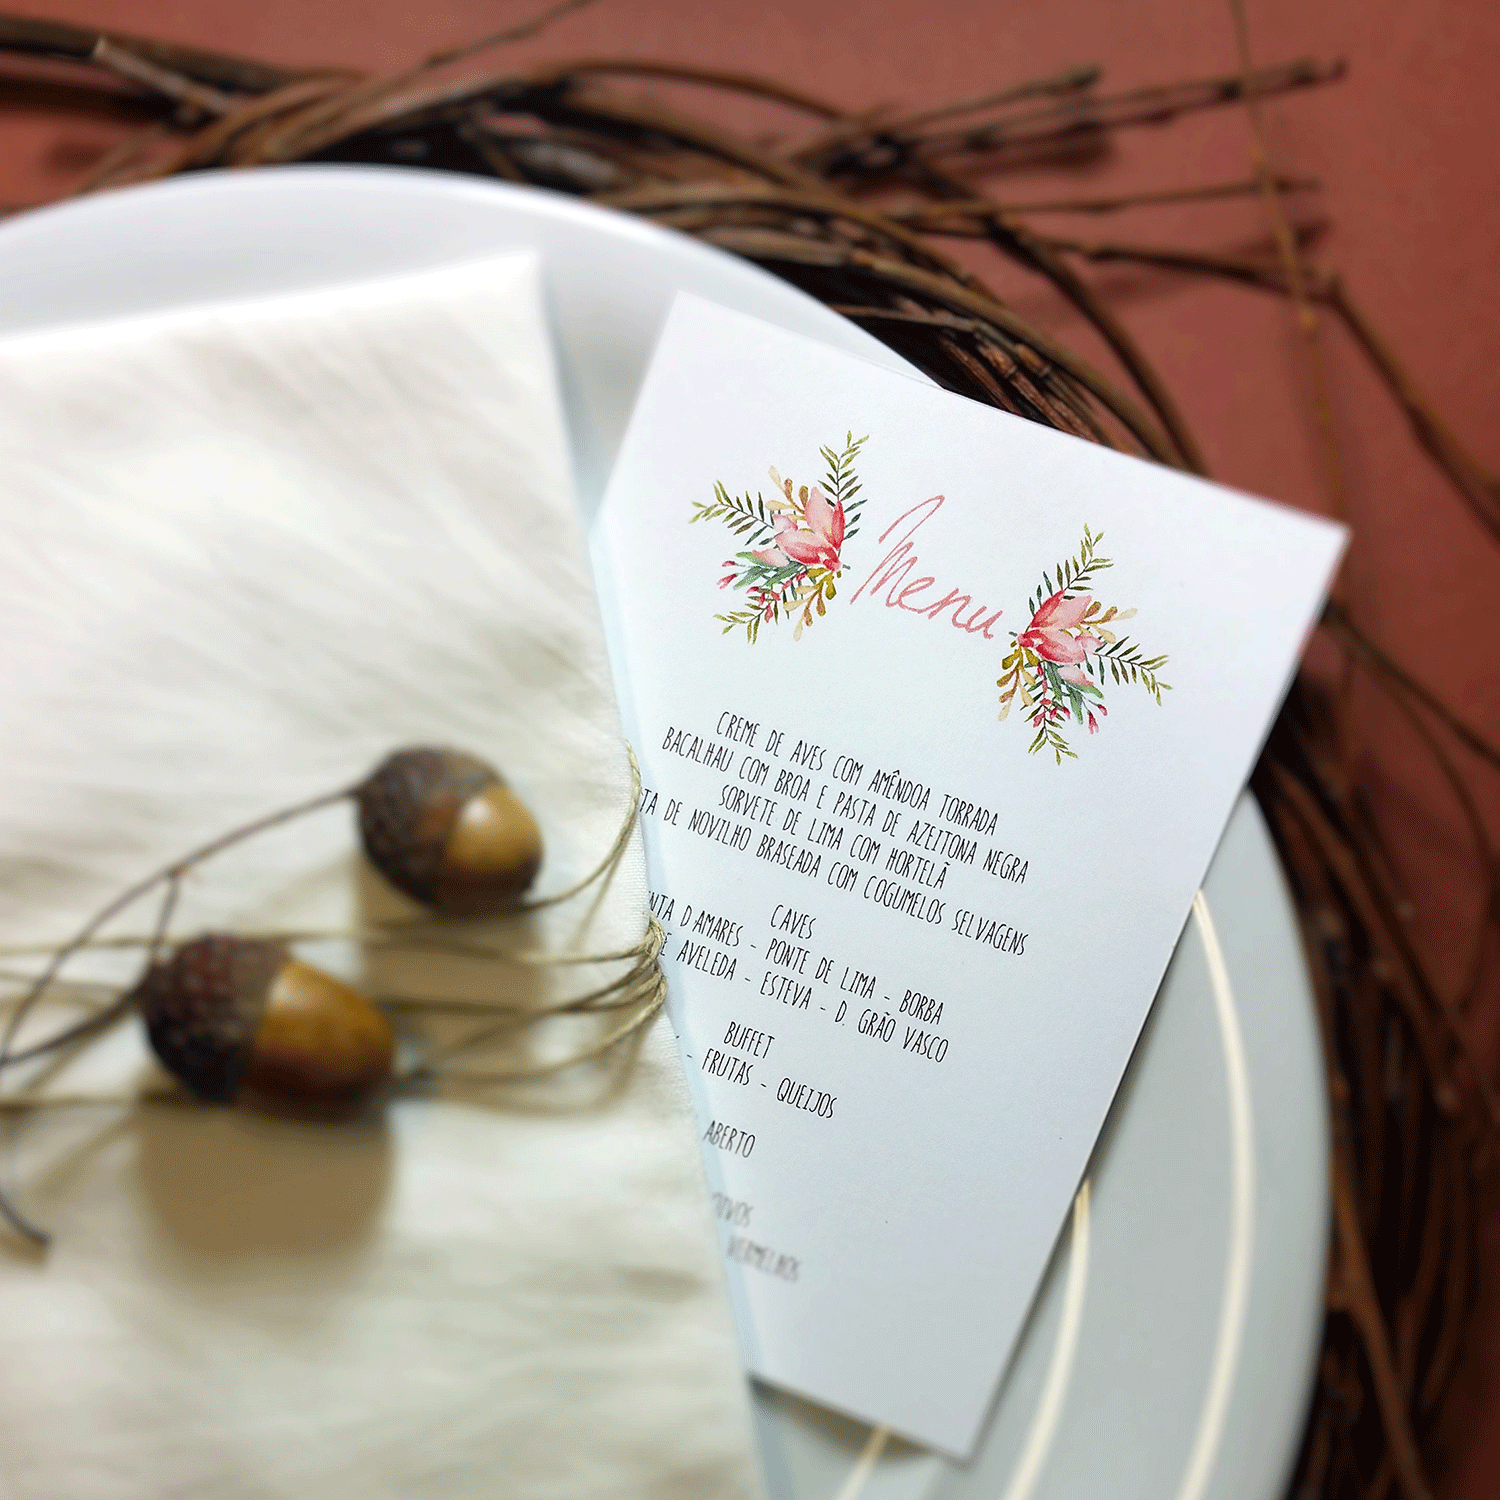 Menu
CREME DE AVES COM AMÊNDOA TORRADA
BACALHAU COM BROA E PASTA DE AZEITONA NEGRA
SORVETE DE LIMA COM HORTELÃ
TA DE NOVILHO BRASEADA COM COGUMELOS SELVAGENS
CAVES
NTA D'AMARES - PONTE DE LIMA - BORBA
E AVELEDA - ESTEVA - D. GRÃO VASCO
BUFFET
- FRUTAS - QUEIJOS
ABERTO
VERMELHOS